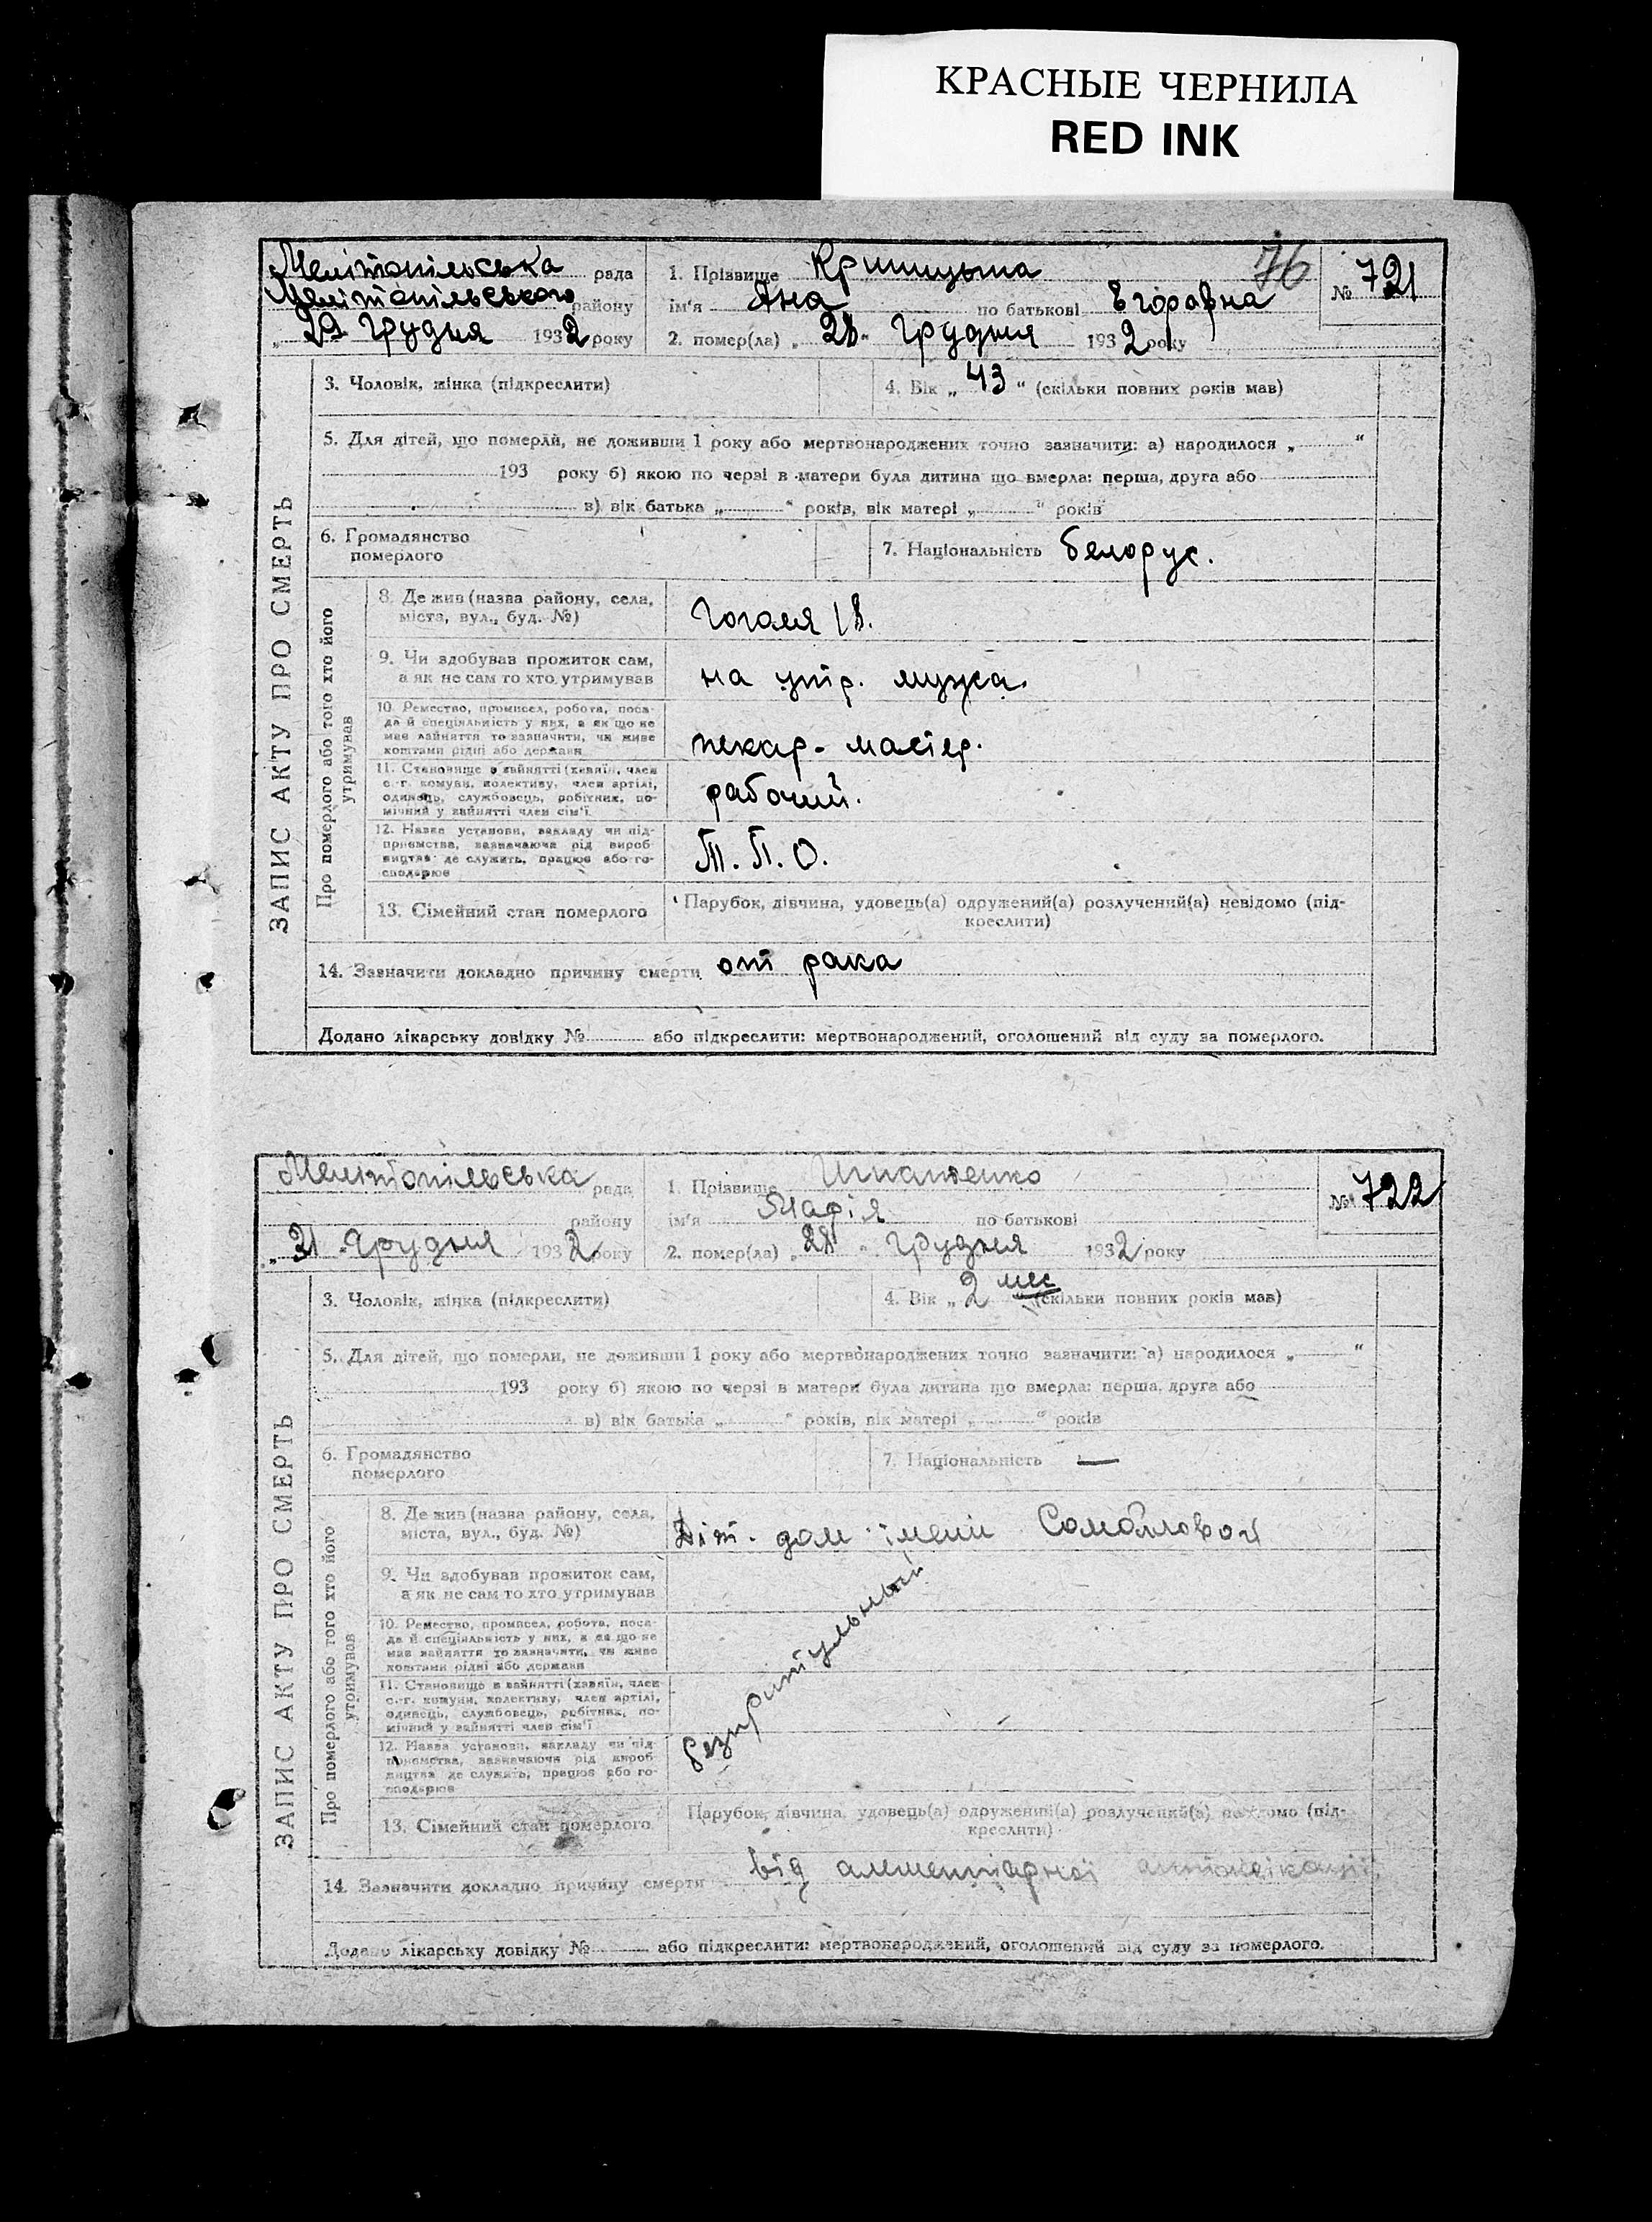 КРАСНЫЕ ЧЕРНИЛА
RED INK
76
Мелітопільська рада
Мелітопільського району
„ 29 Грудня 1932 року
1. Прізвище
ім'я Яна по батькові Єгоровна
2. помер(ла) „ 28 " Грудня 1932 року
№ 721
ЗАПИС АКТУ ПРО СМЕРТЬ
3. Чоловік, жінка (підкреслити)
4. Вік „ 43 " (скільки повних років мав)
5. Для дітей, що померли, не доживши 1 року або мертвонароджених точно зазначити: а) народилося „ "
193 року б) якою по черзі в матери була дитина що вмерла: перша, друга або
в) вік батька „ " років, вік матері „ " років
6. Громадянство
померлого
7. Національність белорус.
Про померлого або того хто його
утримував
8. Де жив (назва району, села,
міста, вул., буд. №)
Гоголя 18.
9. Чи здобував прожиток сам,
а як не сам то хто утримував
на утр. мужа.
10. Ремество, промисел, робота, поса-
да й спеціяльність у них, а як що не
мав зайняття то зазначити, чи живе
коштами рідні або держави
пекар - мастер.
11. Становище в зайнятті (хазяїн, член
с.-г. комуни, колективу, член артілі,
одинець, службовець, робітник, по-
мічний у зайнятті член сім'ї
рабочий.
12. Назва установи, закладу чи під-
приємства, зазначаючи рід вироб
ництва де служить, працює або го-
сподарює
Т. П. О.
13. Сімейний стан померлого
Парубок, дівчина, удовець(а) одружений(а) розлучений(а) невідомо (під-
креслити)
14. Зазначити докладно причину смерти от рака
Додано лікарську довідку № або підкреслити: мертвонароджений, оголошений від суду за померлого.
Мелітопільська рада
району
„ 31 " Грудня 1932 року
1. Прізвище
ім'я Марія по батькові
2. помер(ла) „ 28 " Грудня 1932 року
№ 722
ЗАПИС АКТУ ПРО СМЕРТЬ
3. Чоловік, жінка (підкреслити)
4. Вік „ 2 мес " (скільки повних років мав)
5. Для дітей, що померли, не доживши 1 року або мертвонароджених точно зазначити: а) народилося „ "
193 року б) якою по черзі в матери була дитина що вмерла: перша, друга або
в) вік батька „ " років, вік матері „ " років
6. Громадянство
померлого
7. Національність —
Про померлого або того хто його
утримував
8. Де жив (назва району, села,
міста, вул., буд. №)
Діт. дом імені Самойловой
9. Чи здобував прожиток сам,
а як не сам то хто утримував
10. Ремество, промисел, робота, поса-
да й спеціяльність у них, а як що не
мав зайняття то зазначити, чи живе
коштами рідні або держави
11. Становище в зайнятті (хазяїн, член
с.-г. комуни, колективу, член артілі,
одинець, службовець, робітник, по-
мічний у зайнятті член сім'ї
12. Назва установи, закладу чи під-
приємства, зазначаючи рід вироб
ництва де служить, працює або го-
сподарює
безпритульный
13. Сімейний стан померлого
Парубок, дівчина, удовець(а) одружений(а) розлучений(а) невідомо (під-
креслити)
14. Зазначити докладно причину смерти від
Додано лікарську довідку № або підкреслити: мертвонароджений, оголошений від суду за померлого.